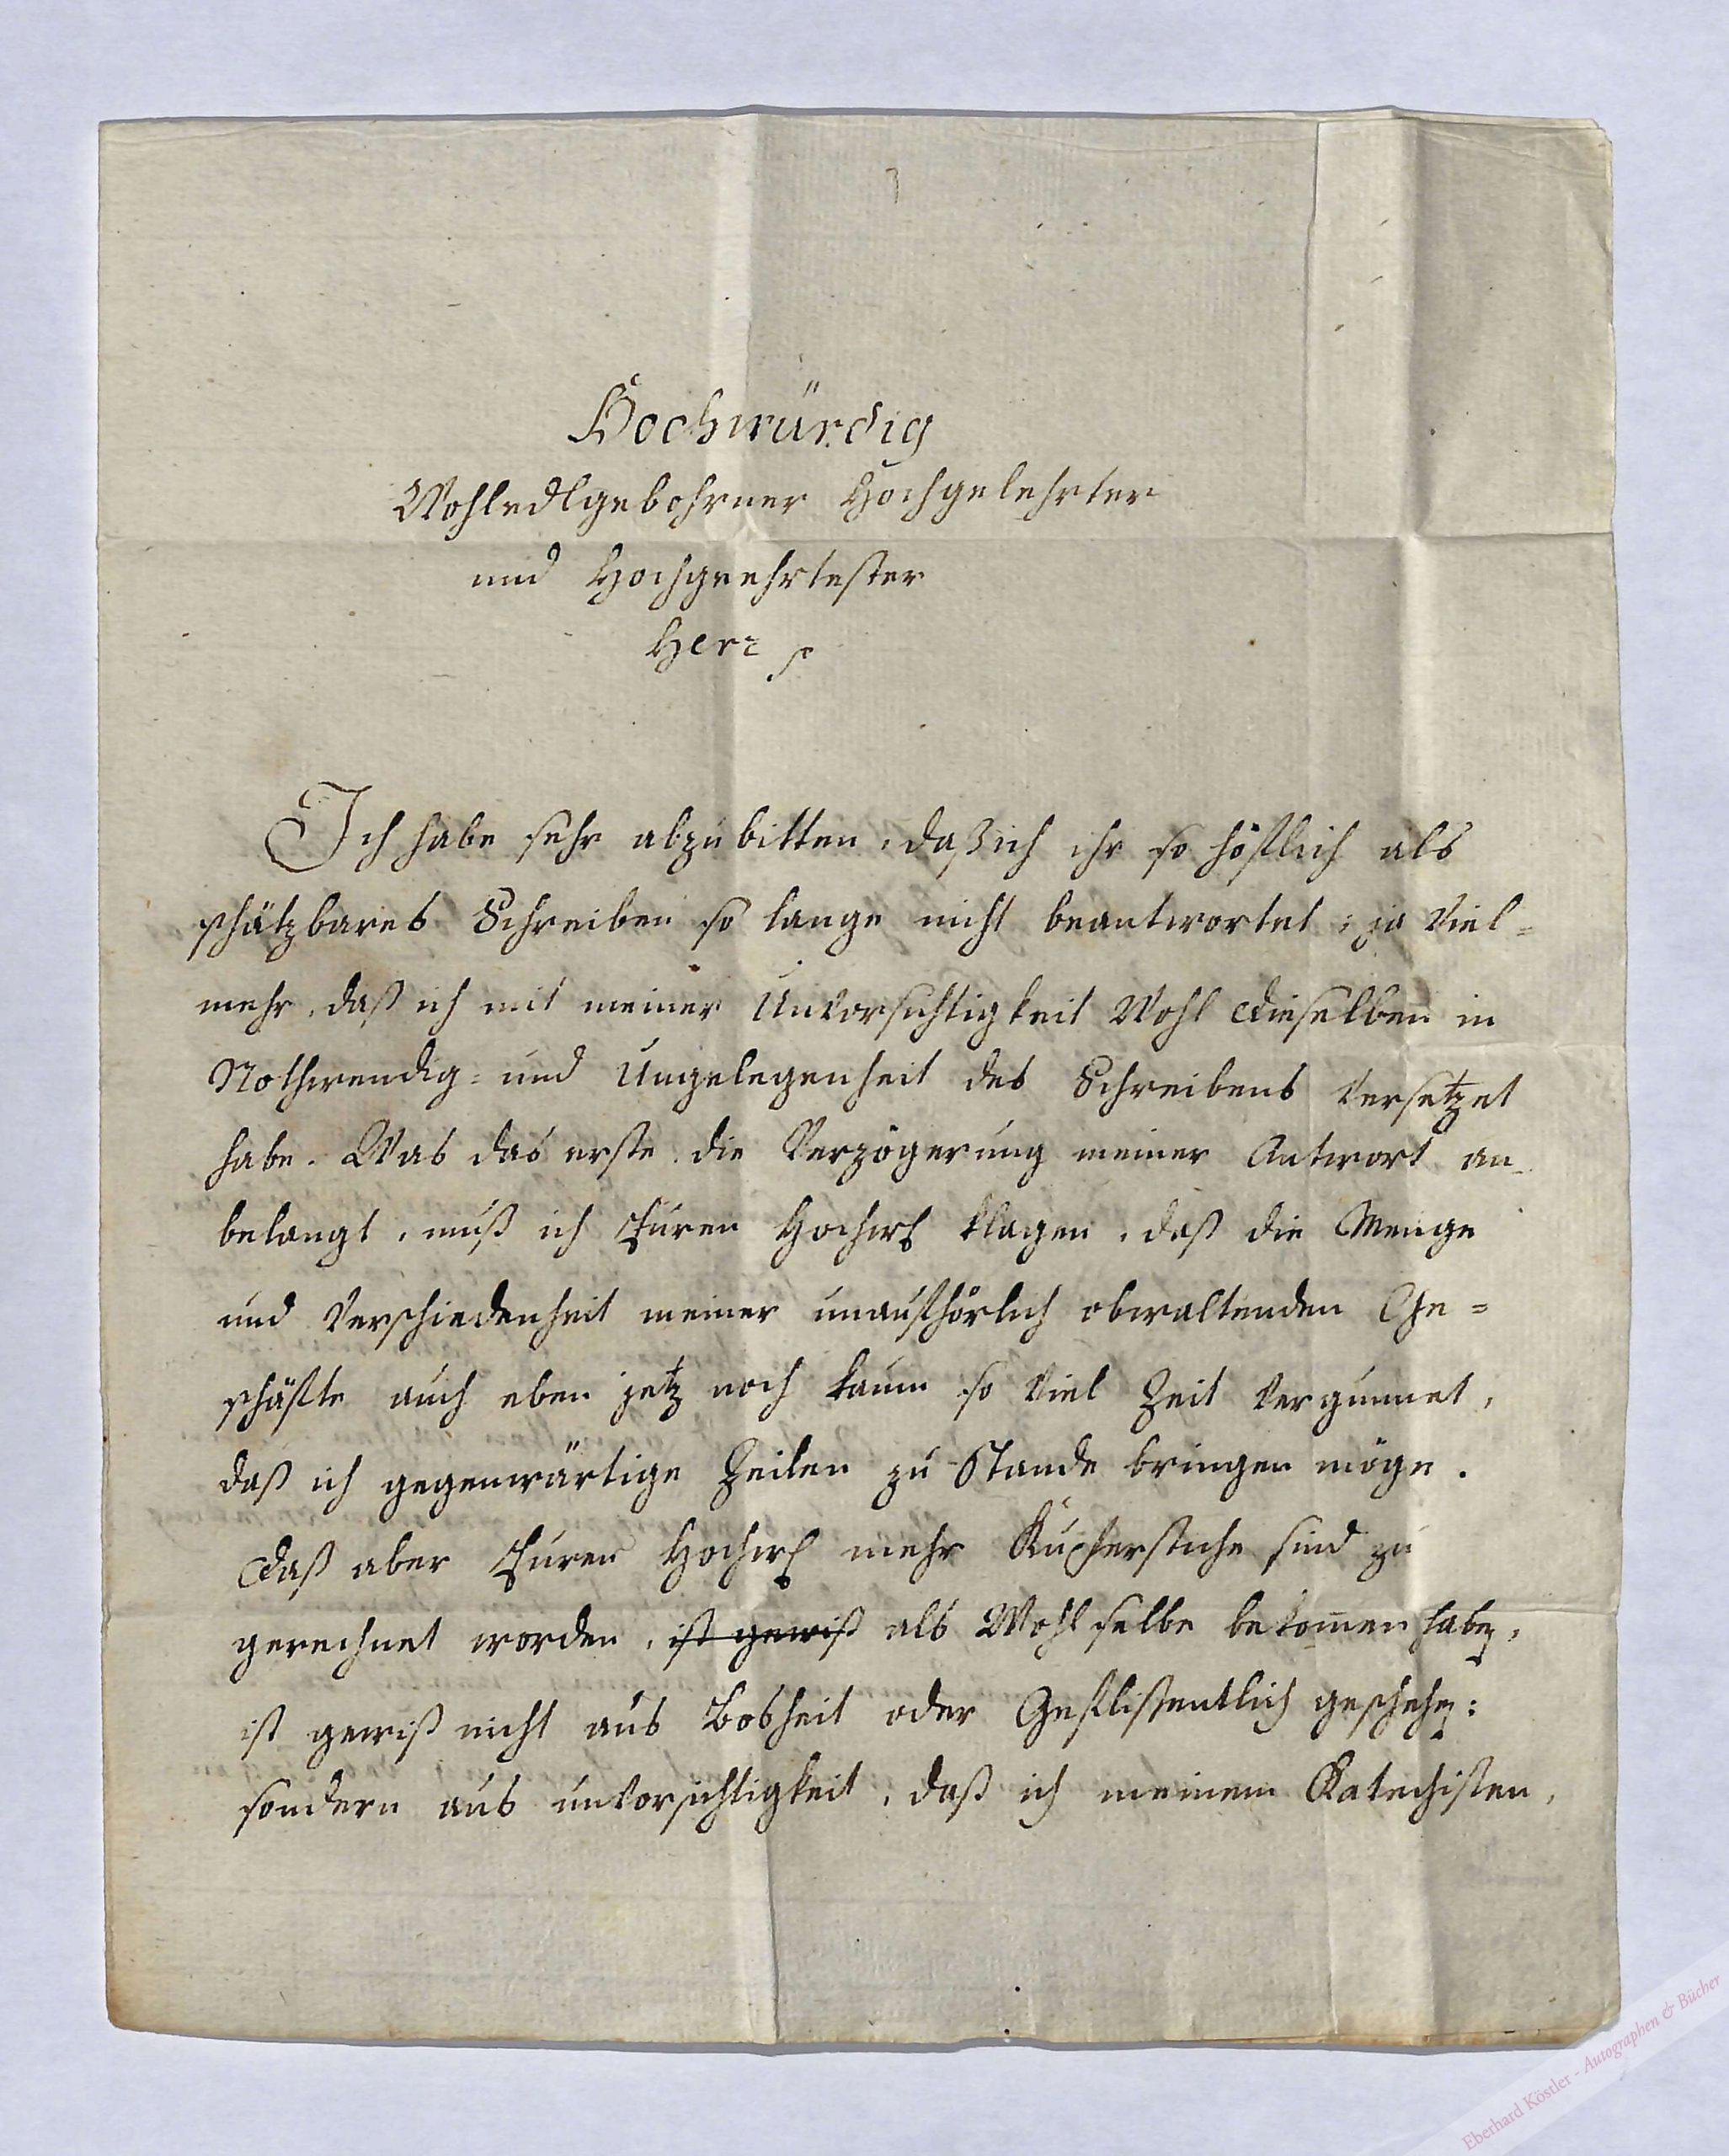 Hochwürdig
Wohledlgebohrner Hochgelehrter
und Hochgeehrtester
Herr
Ich habe sehr abzubitten, daß ich ihr so höflich als
schätzbares Schreiben so lange nicht beantwortet; ja viel=
mehr, daß ich mit meiner Unvorsichtigkeit Wohl dieselben in
Nothwendig= und Ungelegenheit des Schreibens versetzet
habe. Was das erste die Verzögerung meiner Antwort an
belangt, muß ich Euren Hochw klagen, daß die Menge
und Verschiedenheit meiner unaufhörlich obwaltenden Ge=
schäfte auch eben jetz noch kaum so viel Zeit vergunnet,
daß ich gegenwärtige Zeilen zu Stande bringen möge.
Daß aber Euren Hochw mehr Kupferstiche sind zu
gerechnet worden, ist gewiß als Wohl selbe bekommen haben,
ist gewiß nicht aus Bosheit oder Geflissentlich geschehen:
sondern aus unvorsichtigkeit, daß ich meinem Katechisten,
Eberhard Köstler - Autographen & Bücher